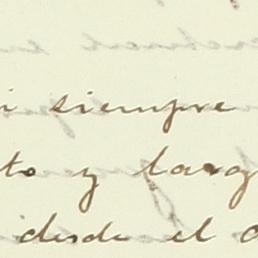 i siempre
to y larg
desde el